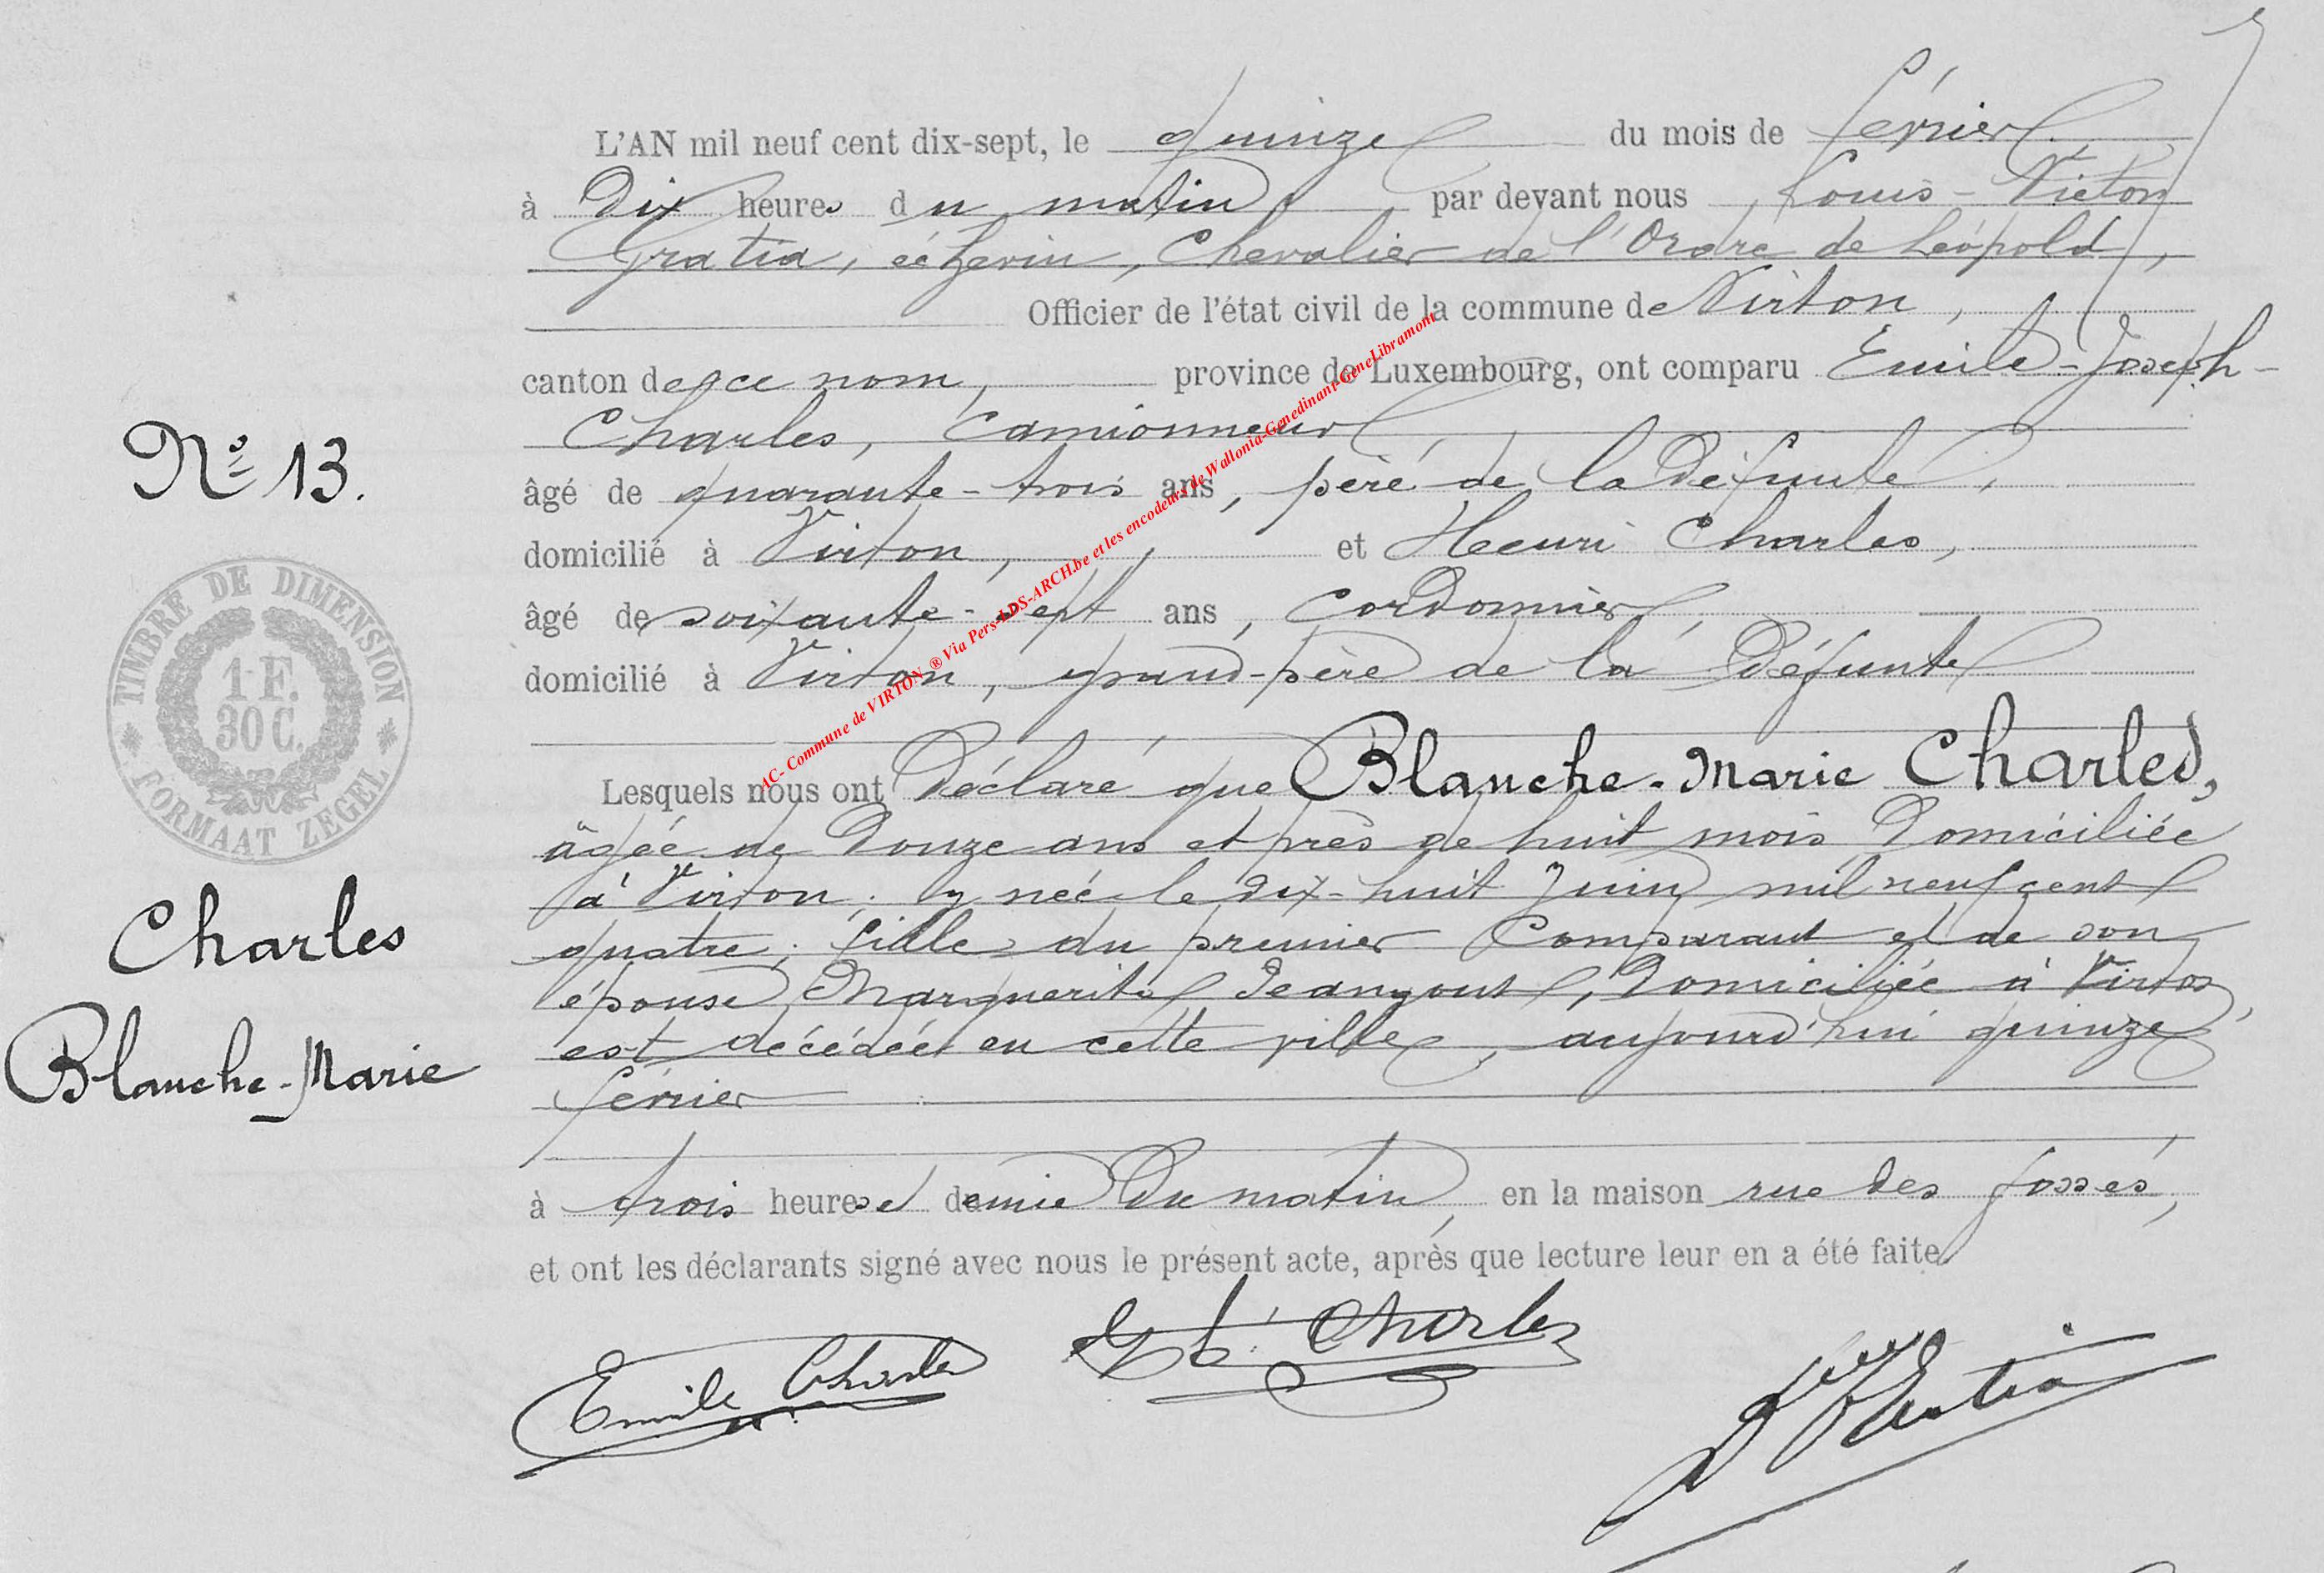 L'AN mil neuf cent dix-sept, le quinze du mois de février
à Dix heures du matin, par devant nous Louis-Victor
Gratia, échevin, Chevalier de l'Ordre de Léopold,
Officier de l'état civil de la commune de Virton,
canton de ce nom, province de Luxembourg, ont comparu Emile-Joseph-
Charles, Camionneur
N° 13.
âgé de quarante-trois ans, père de la Défunte,
domicilié à Virton, et Henri Charles,
âgé de soixante-sept ans, Cordonnier,
domicilié à Virton, grand-père de la Défunte
TIMBRE DE DIMENSION
1 F.
30 C.
FORMAAT ZEGEL
Lesquels nous ont Déclaré que Blanche-Marie Charles,
âgée de Douze ans et près de huit mois Domiciliée
à Virton, y née le dix-huit Juin mil neuf cent
quatre, fille du premier Comparant et de son
épouse Marguerite Jeangout, Domiciliée à Virton,
est décédée en cette ville, aujourd'hui quinze
février
Charles
Blanche-Marie
à trois heures et demie Du matin, en la maison rue des fossés,
et ont les déclarants signé avec nous le présent acte, après que lecture leur en a été faite
Emile Charles
H. Charles
Gratia
AC- Commune de VIRTON ® Via Pers-LDS-ARCH.be et les encodeurs de Wallonia-Genedinant-GeneLibramont